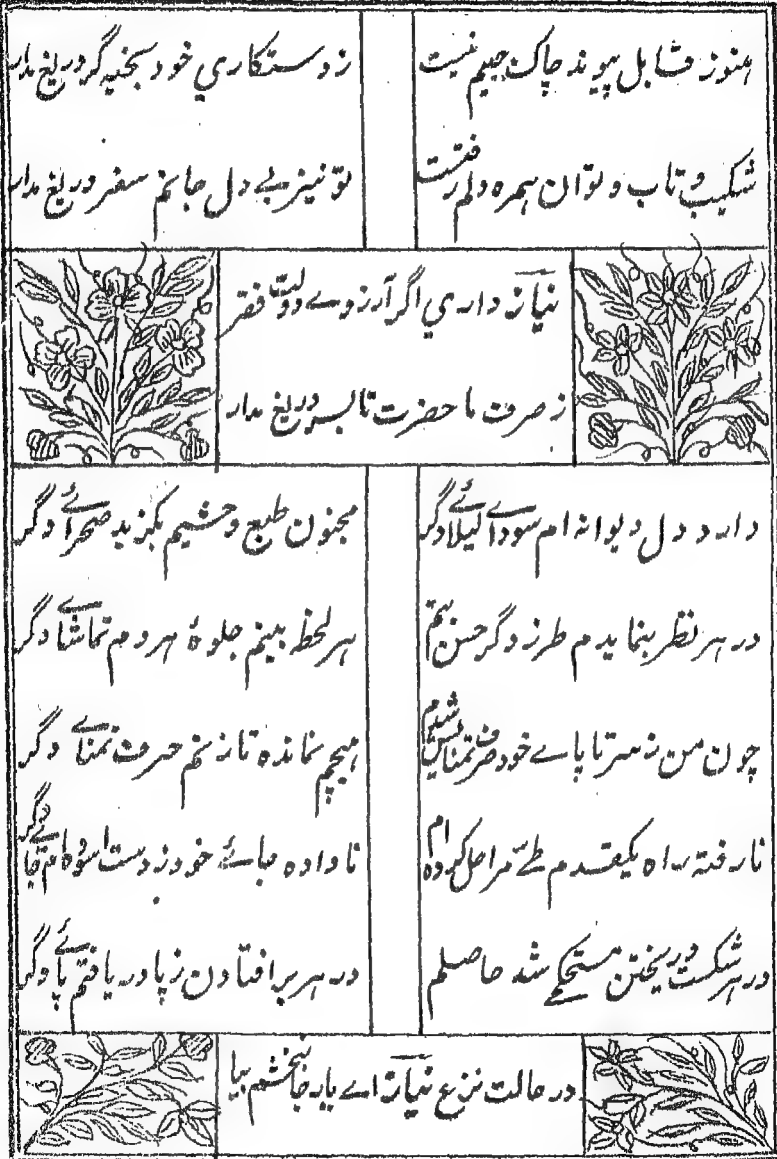 هنوز قابل پیوند چاک جیبم نیست
ز دستکاري خود بخیه گر دریغ مدار
شکیب و تاب و توان همره دلم رفتست
تو نیز بے دل جانم سفر دریغ مدار
نیاز داري اگر آرزوے دولت فقر
ز صرف ماحضرت تا بسر دریغ مدار
دارد دل دیوانه ام سوداے لیلائے دگر
مجنون طبع وحشیم بگزید صحرائے دگر
در هر نظر بنمایدم طرز دگر حسن بتم
هر لحظه بینم جلوهٔ هر دم تماشاے دگر
چون من ز سر تا پاے خود صرف تمنایش شدم
هیچم نمانده تا زنم حرف تمناے دگر
نارفته راه یکقدم طے مراحل کرده ام
ناداده جائے خود ز دست آسوده ام جائے دگر
در هر شکست و ریختن مستحکمے شد حاصلم
در هر بر افتادن ز پا دریافتم پائے دگر
در حالت نزع نیاز اے یار جانبخشم بیا